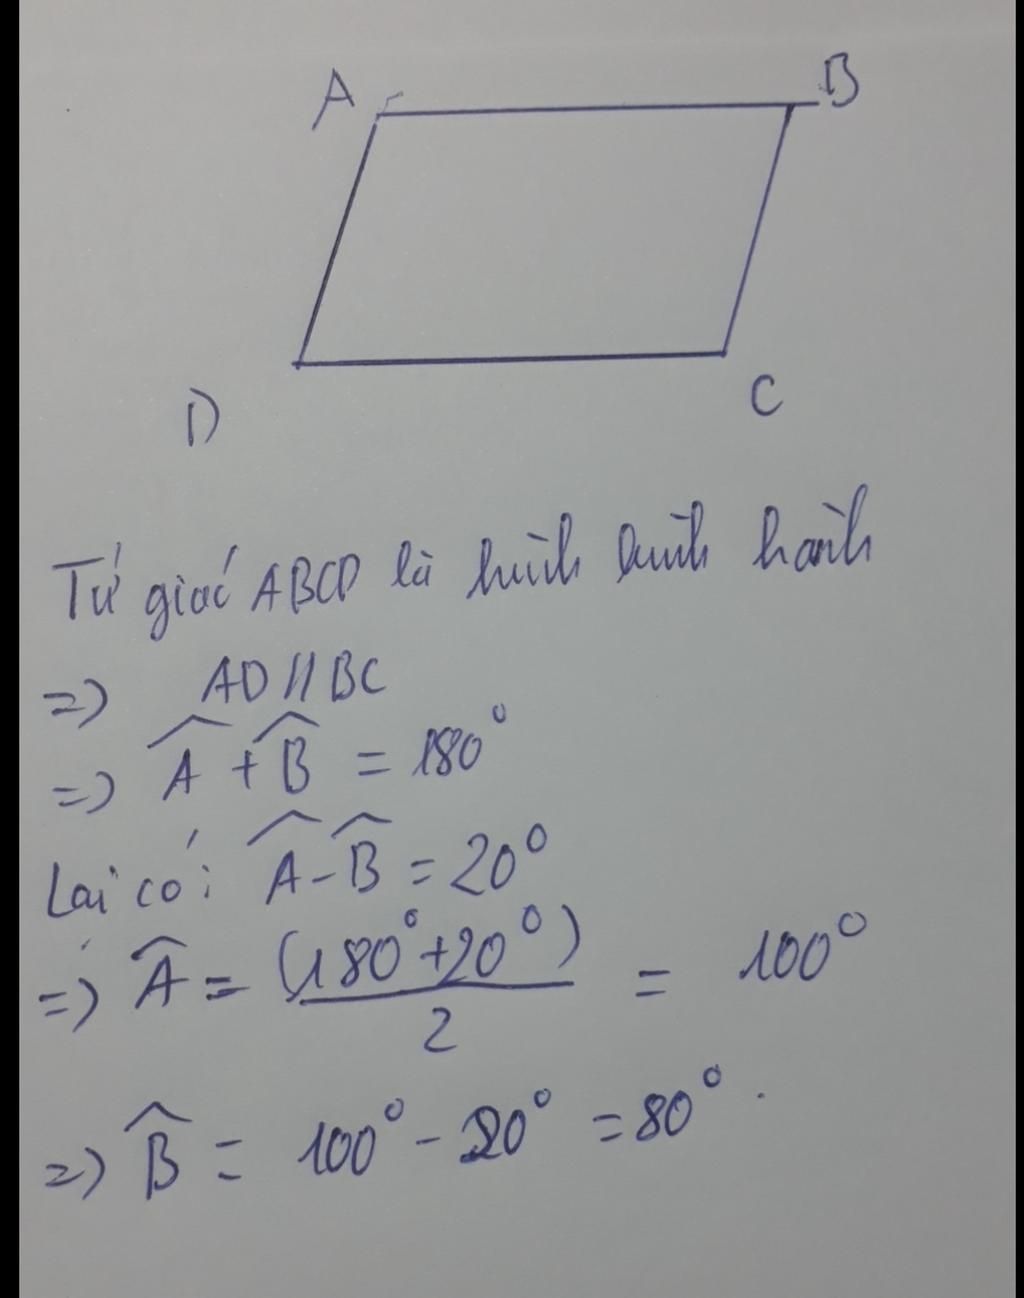 A
B
D
C
Tứ giác ABCD là hình bình hành
=> AD // BC
=> Â + B̂ = 180°
Lại có: Â - B̂ = 20°
=> Â = (180° + 20°) / 2 = 100°
=> B̂ = 100° - 20° = 80°.